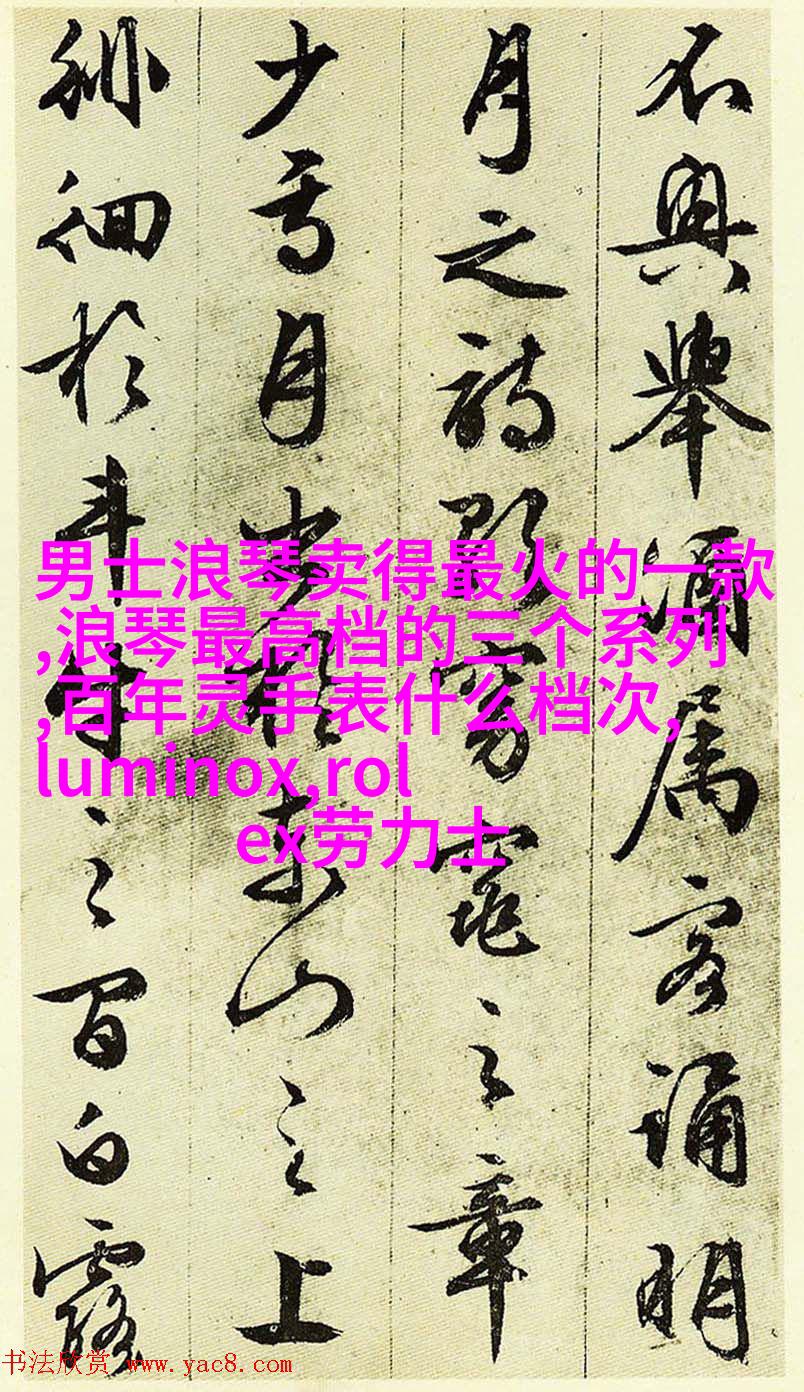 不興舉酒属客誦明
月之詩歌窈窕之章
少焉月出於東山之上
徘徊於斗牛之間白露
男士浪琴卖得最火的一款
,浪琴最高档的三个系列
,百年灵手表什么档次,
luminox,rol
ex劳力士
书法欣赏 www.yac8.com